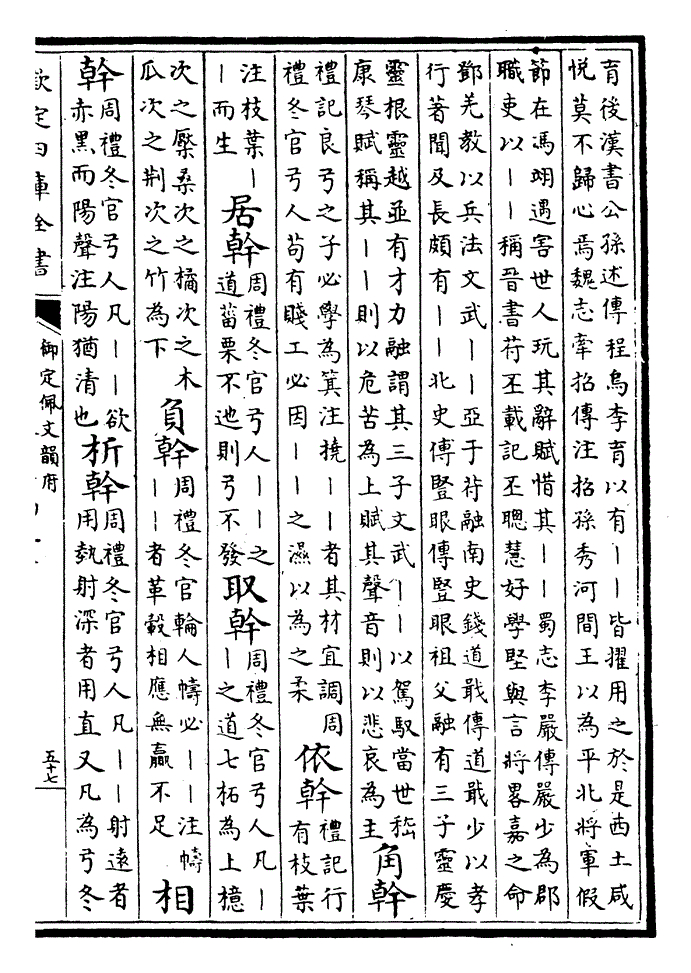 育後漢書公孫述傳程烏李育以有——皆擢用之於是西土咸
悅莫不歸心焉魏志牽招傳注招孫秀河間王以為平北將軍假
節在馮翊遇害世人玩其辭賦惜其——蜀志李嚴傳嚴少為郡
職吏以——稱晉書苻丕載記丕聰慧好學堅與言將畧嘉之命
鄧羌教以兵法文武——亞于苻融南史錢道戢傳道戢少以孝
行著聞及長頗有——北史傅豎眼傳豎眼祖父融有三子靈慶
靈根靈越並有才力融謂其三子文武——以駕馭當世嵇
康琴賦稱其——則以危苦為上賦其聲音則以悲哀為主
角幹
禮記良弓之子必學為箕注撓——者其材宜調周
禮冬官弓人苟有賤工必因——之濕以為之柔
依幹
禮記行
有枝葉
注枝葉—
—而生
居幹
周禮冬官弓人——之
道菑栗不迆則弓不發
取幹
周禮冬官弓人凡—
—之道七柘為上檍
次之檿桑次之橘次之木
瓜次之荊次之竹為下
負幹
周禮冬官輪人幬必——注幬
——者革轂相應無贏不足
相
幹
周禮冬官弓人凡——欲
赤黑而陽聲注陽猶清也
析幹
周禮冬官弓人凡——射遠者
用埶射深者用直又凡為弓冬
欽定四庫全書
御定佩文韻府
五十七